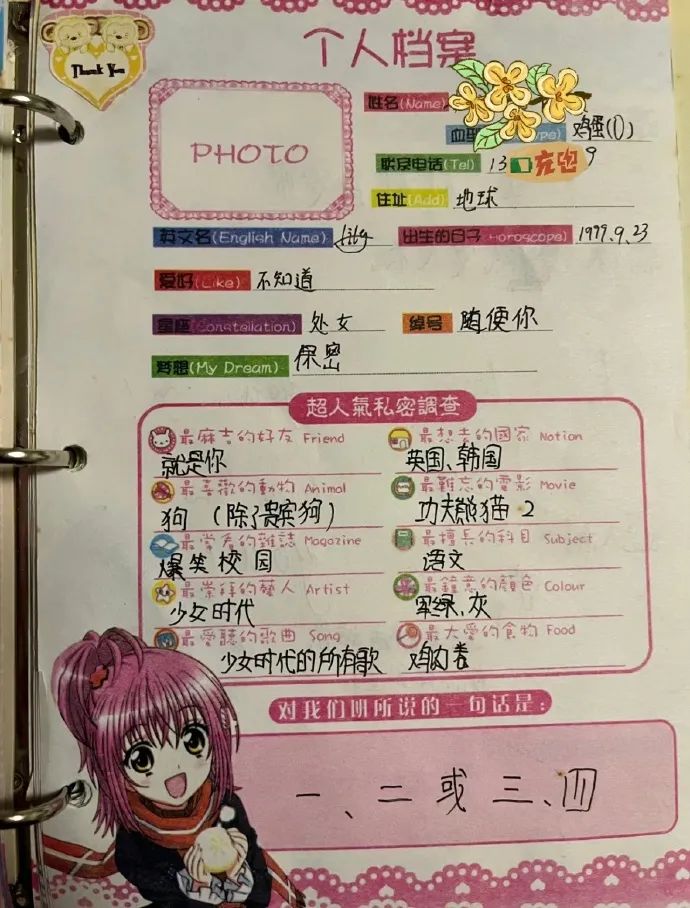 Thank You
个人档案
PHOTO
姓名(Name)
鸡蛋(O)
联系电话(Tel) 13 充电 9
住址(Add) 地球
英文名(English Name) Lily 出生的日子(Horoscope) 1999.9.23
爱好(Like) 不知道
星座(Constellation) 处女 绰号 随便你
梦想(My Dream) 保密
超人氣私密調查
最麻吉的好友 Friend 最想去的國家 Nation
就是你 英国、韩国
最喜歡的動物 Animal 最難忘的電影 Movie
狗（除了贵宾狗） 功夫熊猫 2
最常看的雜誌 Magazine 最擅長的科目 Subject
爆笑校园 语文
最崇拜的藝人 Artist 最鍾意的顏色 Colour
少女时代 军绿、灰
最愛聽的歌曲 Song 最大愛的食物 Food
少女时代的所有歌 鸡肉卷
对我们班所说的一句话是:
一、二或三、四